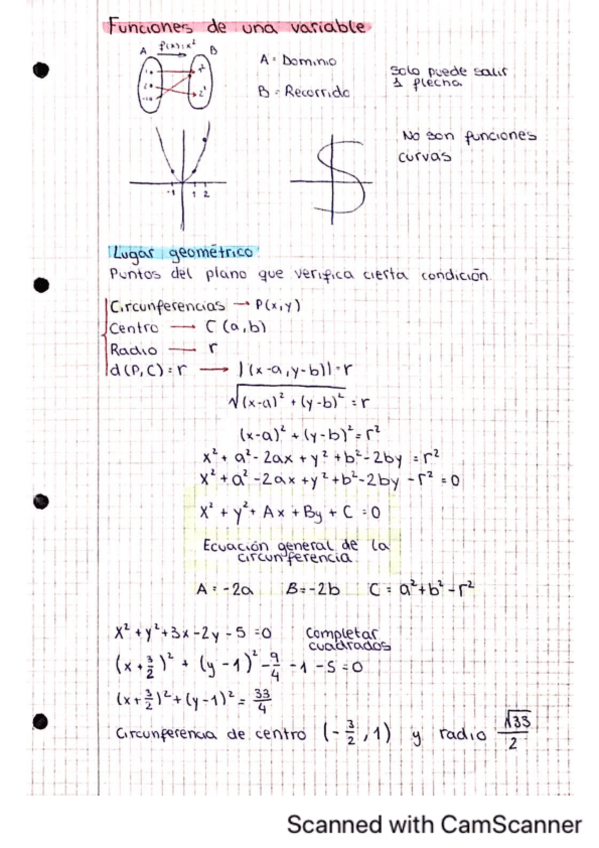 Funciones de una variable
A f(x)=x² B
A = Dominio
B = Recorrido
Solo puede salir
1 flecha.
-1 1 2
No son funciones
curvas
Lugar geométrico
Puntos del plano que verifica cierta condición
Circunferencias → P(x,y)
Centro → C(a,b)
Radio → r
d(P,C)=r → |(x-a,y-b)|=r
√((x-a)²+(y-b)²) = r
(x-a)²+(y-b)²=r²
x²+a²-2ax+y²+b²-2by=r²
x²+a²-2ax+y²+b²-2by-r²=0
x²+y²+Ax+By+C=0
Ecuación general de la
circunferencia.
A=-2a B=-2b C=a²+b²-r²
x²+y²+3x-2y-5=0 Completar
cuadrados
(x+3/2)²+(y-1)²-9/4-1-5=0
(x+3/2)²+(y-1)²=33/4
Circunferencia de centro (-3/2,1) y radio √33/2
Scanned with CamScanner